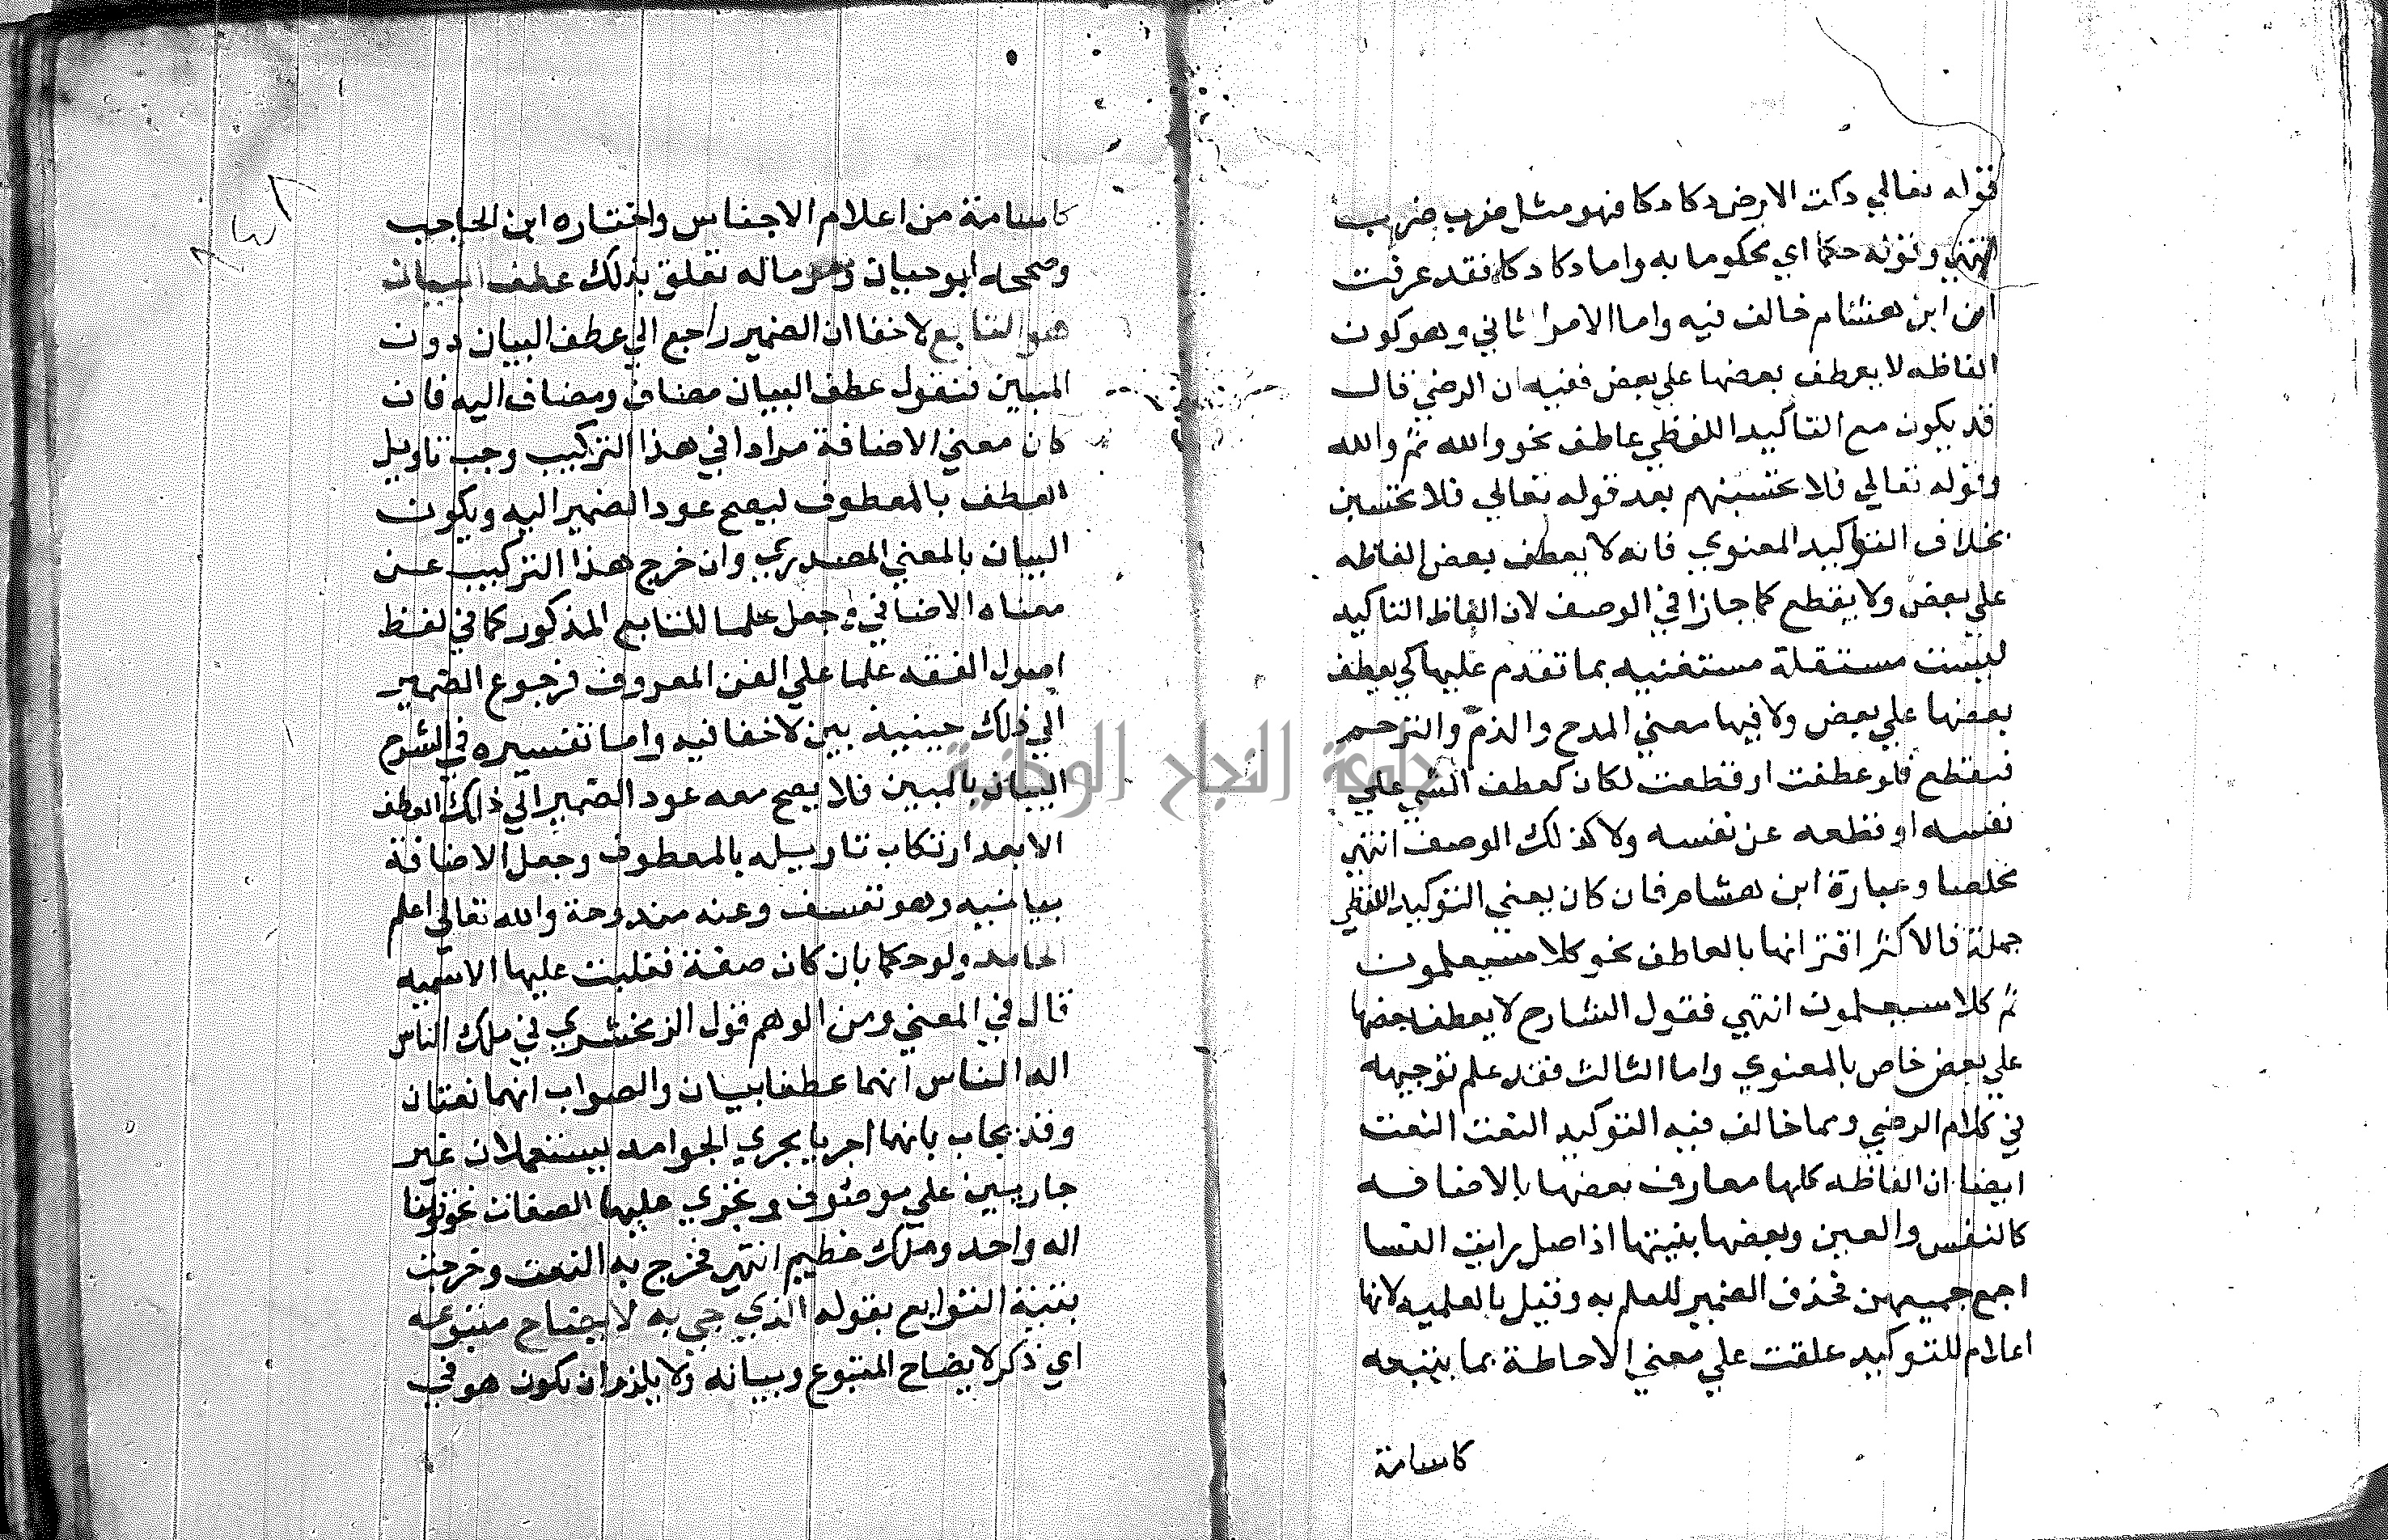 قوله تعالي دكت الارض دكا دكا فهو مثل ضرب ضرب
انتهي وقوله حكما اي محكوما به واما دكا دكا فقد عرفت
ان ابن هشام خالف فيه واما الامر الثاني وهو كون
الفاظه لا يعطف بعضها علي بعض ففيه ان الرضي قال
قد يكون مع التاكيد اللفظي عاطف نحو والله ثم والله
وقوله تعالي فلا تحسبنهم بعد قوله تعالي فلا تحسبن
بخلاف التواكيد المعنوي فانه لا يعطف بعض الفاظه
علي بعض ولا يقطع كما جاز في الوصف لان الفاظ التاكيد
ليست مستقلة مستغنيه بما تقدم عليها كي يعطف
بعضها علي بعض ولا فيها معني المدح والذم والترحم
فيقطع فلو عطفت او قطعت لكان كعطف الشي علي
نفسه او قطعه عن نفسه ولا كذلك الوصف انتهي
مخلصا وعبارة ابن هشام فان كان يعني التوكيد اللفظي
جملة فالاكثر اقترانها بالعاطف نحو كلا سيعلمون
ثم كلا سيعلمون انتهي فقول الشارح لا يعطف بعضها
علي بعض خاص بالمعنوي واما الثالث فقد علم توجيهه
في كلام الرضي ومما خالف فيه التوكيد النعت النعت
ايضا ان الفاظه كلها معارف بعضها بالاضافه
كالنفس والعين وبعضها بنيتها اذ اصل رايت النسا
اجمع جميعهن فحذف الضمير للعلم به وقيل بالعلميه لانها
اعلام للتوكيد علقت علي معني الاحاطة بما يتبعه
كاسامة
كاسامة من اعلام الاجناس واختاره ابن الحاجب
وصححه ابو حيان وهو ماله تعلق بذلك عطف البيان
هو التابع لا خفا ان الضمير راجع الي عطف البيان دون
المبين فنقول عطف البيان مضاف ومضاف اليه فان
كان معني الاضافة مرادا في هذا التركيب وجب تاويل
العطف بالمعطوف ليصح عود الضمير اليه ويكون
البيان بالمعني المصدري وان خرج هذا التركيب عن
معناه الاضافي وجعل علما للتابع المذكور كما في لفظ
اصول الفقه علما علي الفن المعروف فرجوع الضمير
الي ذلك حينيذ بين لا خفا فيه واما تفسيره في الشرح
البيان بالمبين فلا يصح معه عود الضمير الي ذلك العطف
الا بعد ارتكاب تاويله بالمعطوف وجعل الاضافة
بيانيه وهو تعسف وعنه مندوحة والله تعالي اعلم
الجامد ولو حكما بان كان صفة فغلبت عليها الاسميه
قال في المعني ومن الوهم قول الزمخشري في ملك الناس
اله الناس انهما عطفا بيان والصواب انهما نعتان
وقد يجاب بانهما اجريا مجري الجوامد يستعملان غير
جاريين علي موصوف وتجري عليهما الصفات نحو قولنا
اله واحد وملك عظيم انتهي فخرج به النعت وخرجت
بقية التوابع بقوله الذي جي به لايضاح متبوعه
اي ذكر لايضاح المتبوع وبيانه ولا يلزم ان يكون هو في
جامعة النجاح الوطنية